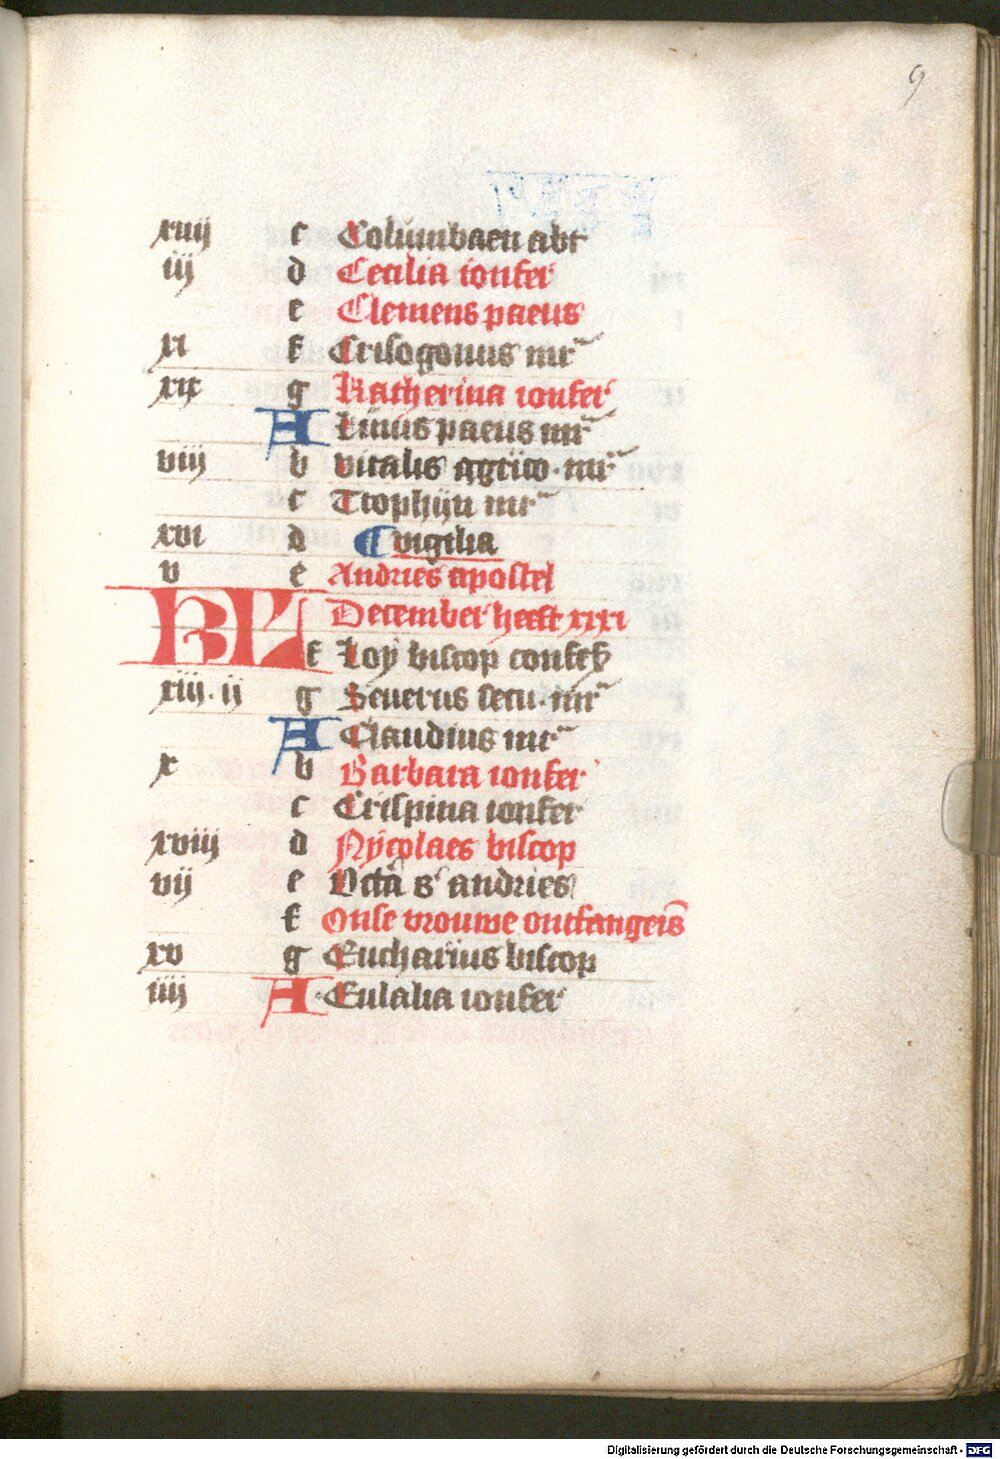 9
xviij c Columbaen abt
iij d Cecilia ionfer
e Clemens paeus
xi f Crisogonus mr
xix g Katherina ionfer
A Linus paeus mr
viij b vitalis agrico. mr
c Trophijn mr
xvi d vigilia
v e Andries apostel
KL December heeft xxxi
f Loy biscop confes
xiij. ij g Seuerus secu. mr
A Claudius mr
x b Barbara ionfer
c Crispina ionfer
xviij d Nycolaes biscop
vij e Octa s andries
f Onse vrouwe ontfangeis
xv g Eucharius biscop
iiij A Eulalia ionfer
Digitalisierung gefördert durch die Deutsche Forschungsgemeinschaft - DFG